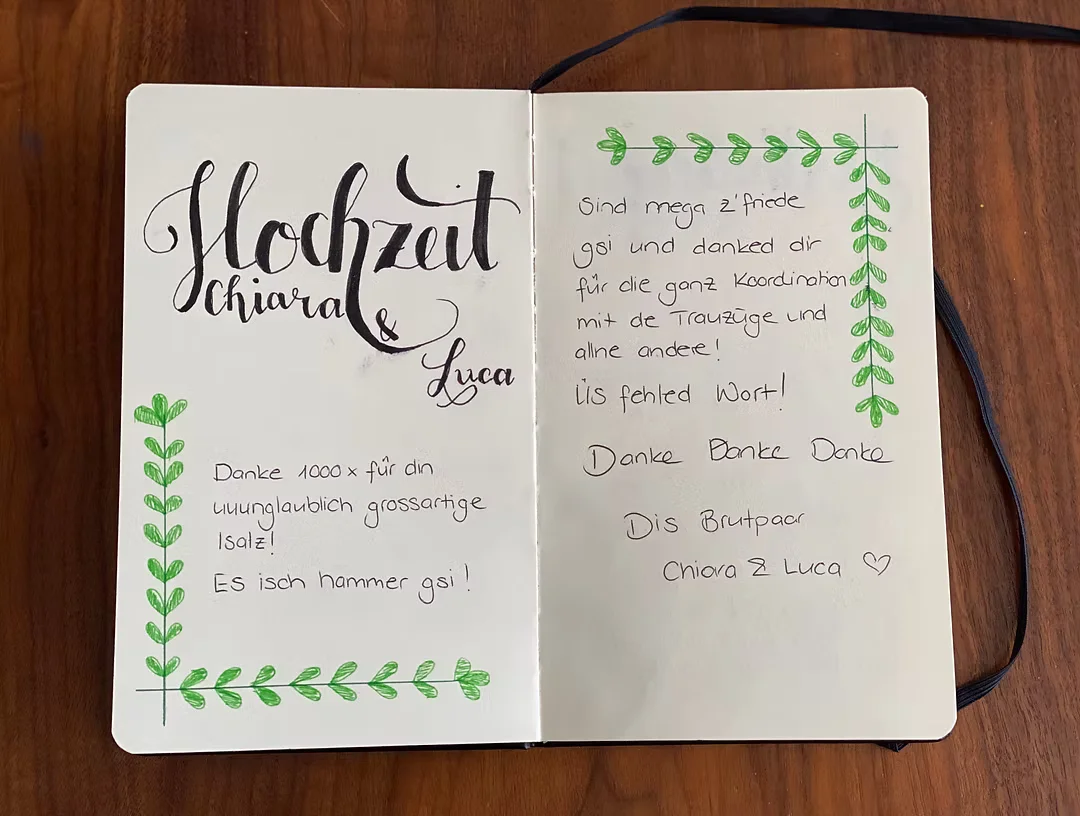 Hochzeit
Chiara
&
Luca
Danke 1000x für din
uuunglaublich grossartige
Isatz!
Es isch hammer gsi!
Sind mega z'friede
gsi und danked dir
für die ganz Koordination
mit de Trauzüge und
allne andere!
Üs fehled Wort!
Danke Danke Danke
Dis Brutpaar
Chiara & Luca ♡